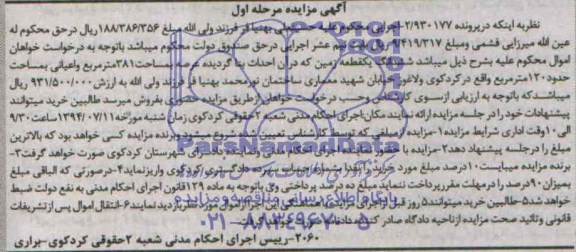 آگهی مزایده مرحله اول
نظریه اینکه درپرونده ۲/۹۳۰۱۷۷-اجرایی محکوم علیه بهنیا فرزند ولی الله مبلغ ۱۸۸/۳۸۶/۳۵۶ریال درحق محکوم له
عین الله میرزایی فشمی ومبلغ ۹۴۱۹/۳۱۷ ریال عشر اجرایی درحق صندوق دولت محکوم میباشد باتوجه به درخواست خواهان
اموال محکوم علیه بشرح ذیل میباشد یکقطعه زمین که دران احداث بنا گردیده مساحت۳۸۱مترمربع واعیانی بمساحت
حدود۱۲۰مترمربع واقع درکردکوی خیابان شهید معماری ساختمان نورمحمد بهنیا فرزند ولی الله به ارزش ۹۳۱/۵۰۰/۰۰۰ ریال
میباشدکه باتوجه به ارزیابی ازسوی کارشناس وحسب درخواست خواهان ازطریق مزایده حضوری بفروش میرسد طالبین خرید میتوانند
پیشنهادات خود را درجلسه مزایده ارائه نمایند مکان:اجرای احکام مدنی شعبه ۲حقوقی کردکوی زمان شنبه مورخه۱۳۹۴/۰۷/۱۱ ساعت۹/۳۰
الی ۱۰وقت اداری شرایط مزایده۱-مزایده ازمبلغی که توسط کارشناس تعیین شده شروع میشود وبرنده مزایده کسی خواهد بود که بالاترین
مبلغ را درجلسه پیشنهاد دهد۲-مزایده با اجرای احکام ونماینده دادسرای شهرستان کردکوی صورت خواهد گرفت۳-
برنده مزایده میبایست۱۰درصد مبلغ مورد خرید را سپرده دادگستری کردکوی واریزنماید۴-درصورتی که الباقی مبلغ
بمیزان ۹۰درصد را درمهلت مقررپرداخت ننماید مبلغ ده درصد پرداختی وی باتوجه به ماده ۱۲۹قانون اجرای احکام مدنی به نفع دولت ضبط
خواهد شد۵-طالبین خرید میتوانند۵ روز قبل ازاجرای مزایده اموال مورد نظربازدید نمایند۶-انتقال اموال پس ازتشریفات
قانونی وتائید صحت مزایده ازناحیه دادگاه صادر کننده
۲۰۶۰-رییس اجرای احکام مدنی شعبه ۲حقوقی کردکوی-براری
ParsNamadData
پایگاه اطلاع رسانی مناقصه و مزایده
۰۲۱-۸۸۳۴۹۶۷۰-۵